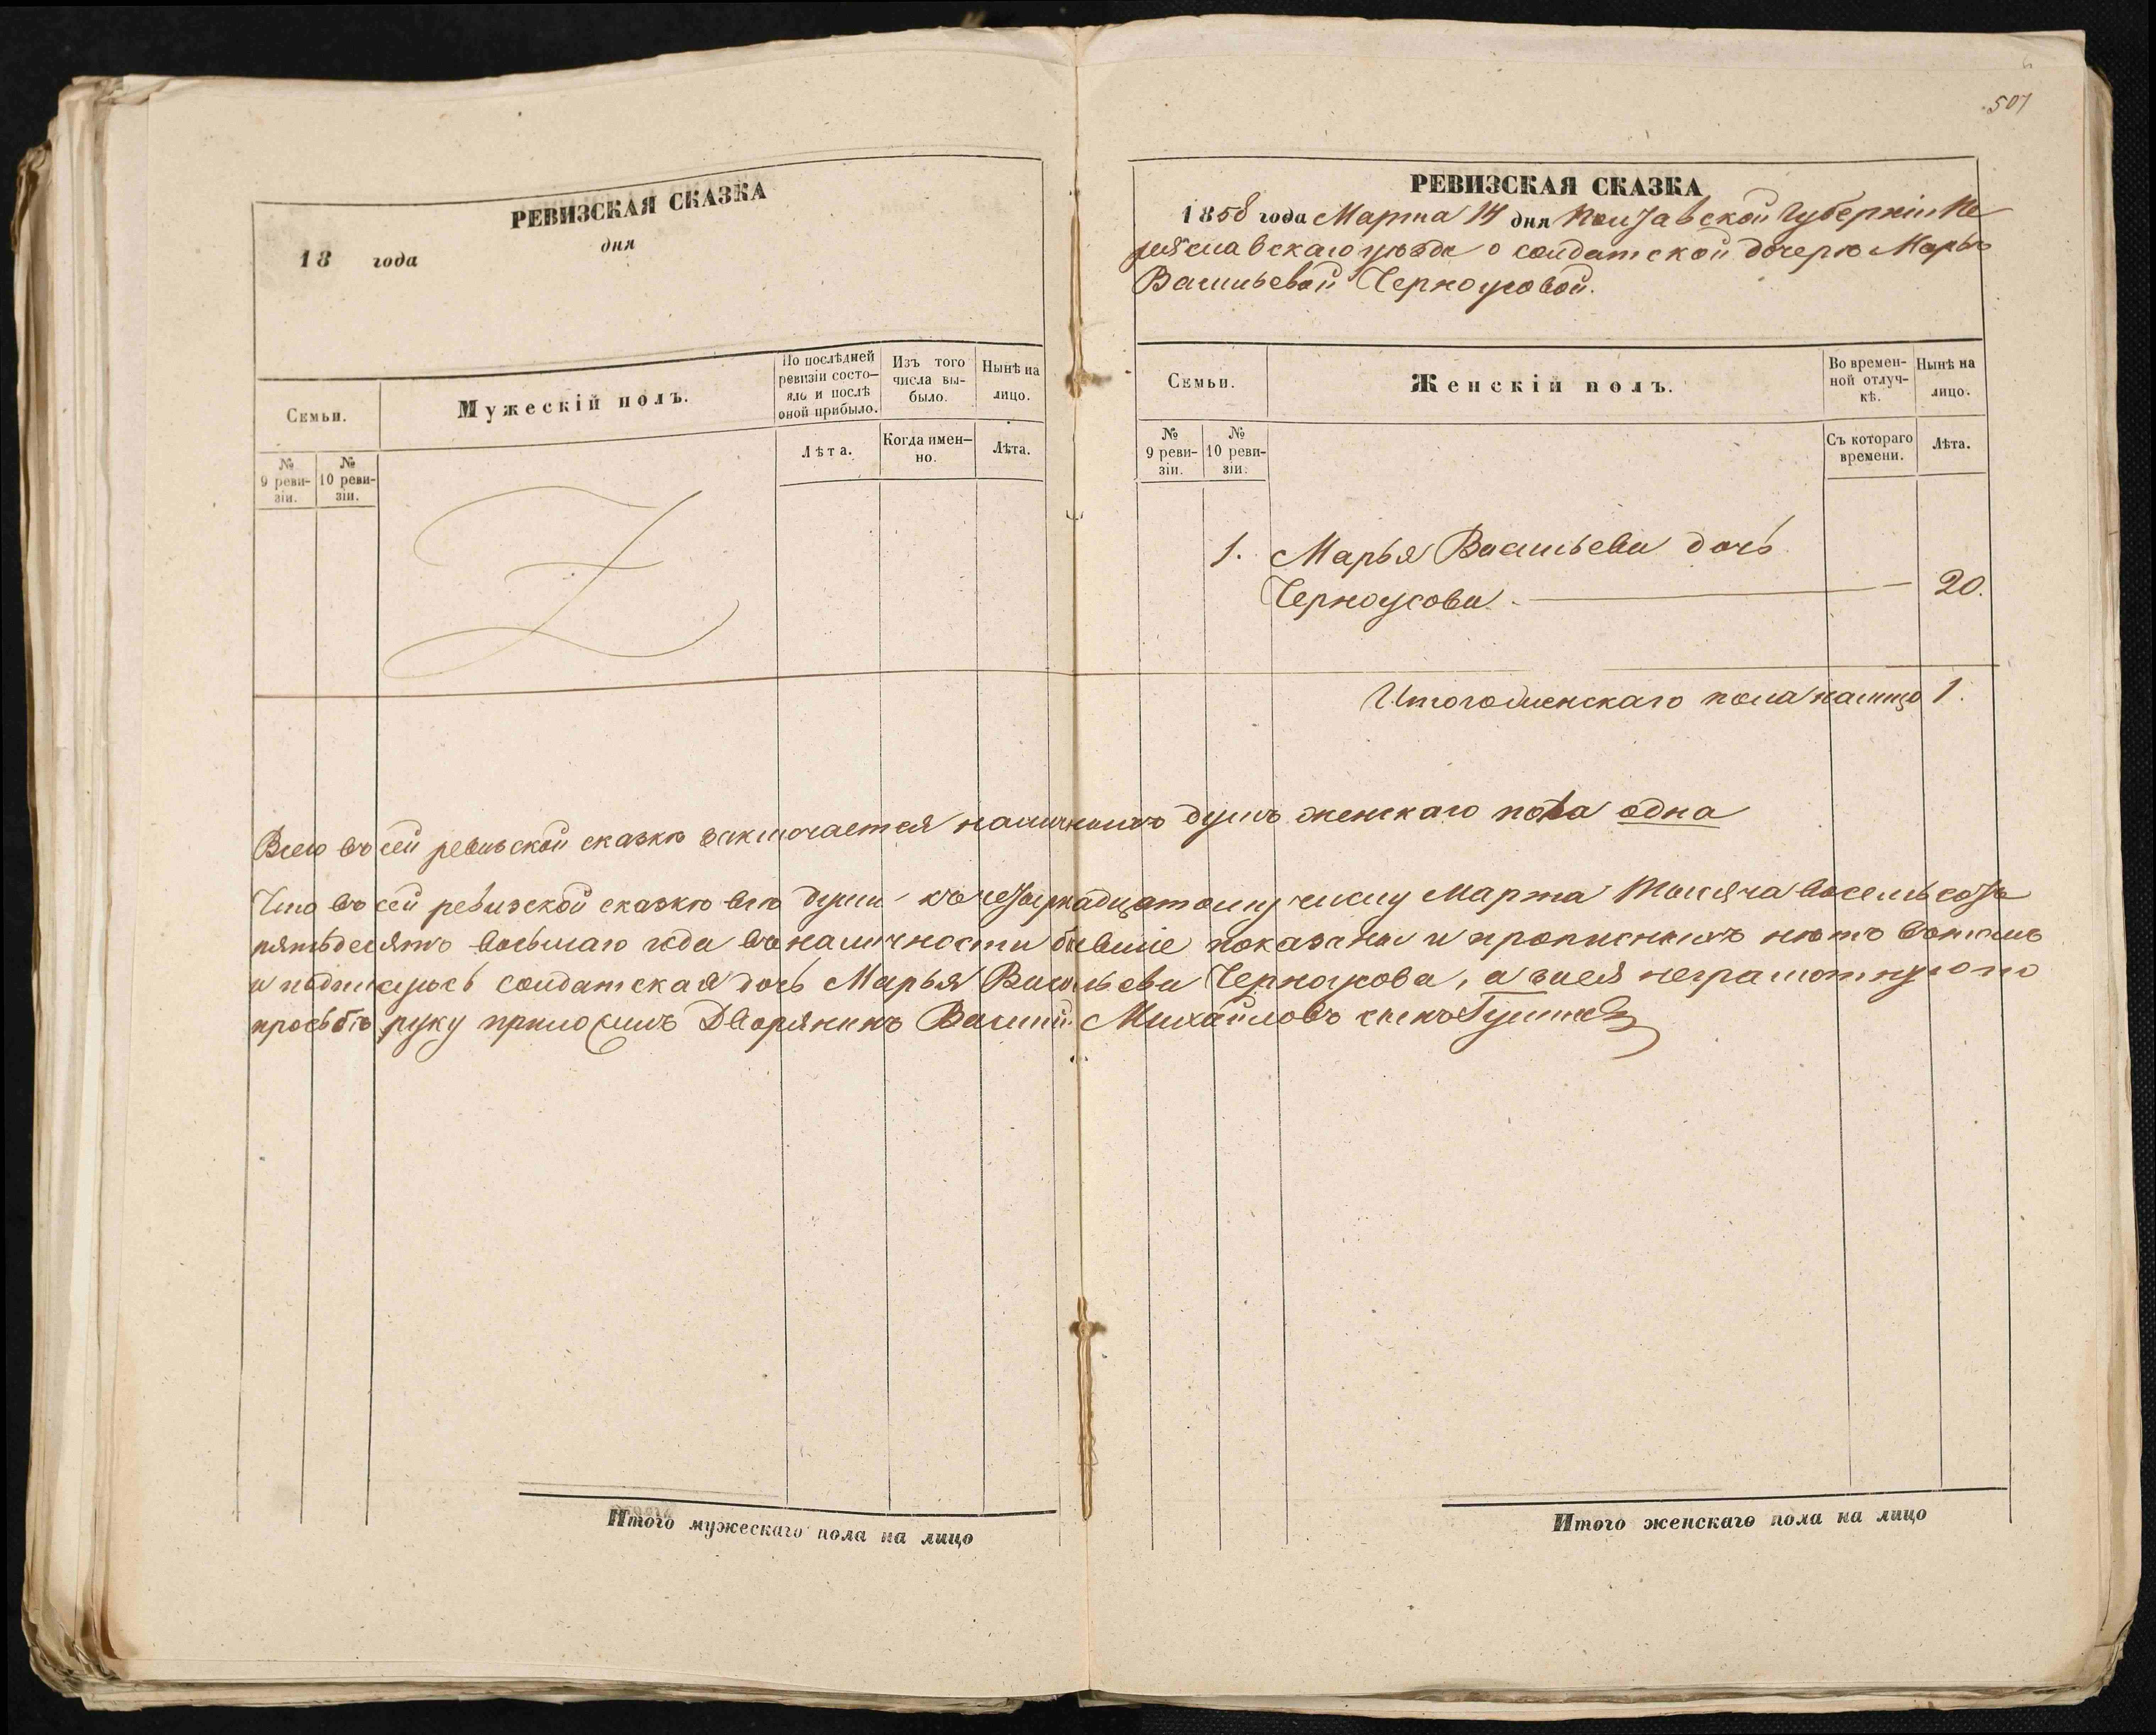 507
РЕВИЗСКАЯ СКАЗКА
18 года дня
Семьи.
Мужескій полъ.
По послѣдней ревизіи состо-яло и послѣ оной прибыло.
Изъ того числа вы-было.
Нынѣ на лицо.
№ 9 реви-зіи.
№ 10 реви-зіи.
Лѣта.
Когда имен-но.
Лѣта.
РЕВИЗСКАЯ СКАЗКА
1858 года Марта 14 дня Полтавской Губерніи Пе
реяславскаго уѣзда о солдатской дочерѣ Марьѣ
Васильевой Черноусовой.
Семьи.
Женскій полъ.
Во времен-ной отлуч-кѣ.
Нынѣ на лицо.
№ 9 реви-зіи.
№ 10 реви-зіи.
Съ котораго времени.
Лѣта.
1. Марья Васильева дочь
Черноусова. — 20.
Итого женскаго пола налицо 1.
Всего въ сей ревизской сказкѣ заключается наличныхъ душъ женскаго пола одна
Что въ сей ревизской сказкѣ всѣ души къ четырнадцатому числу Марта Тысяча восемьсотъ
пятьдесятъ восьмаго года въ наличности бывшіе показаны и прописныхъ нѣтъ въ томъ
и подписуюсь солдатская дочь Марья Васильева Черноусова, а за нея неграмотную по
прозьбѣ руку приложилъ Дворянинъ Василій Михайловъ сынъ
Итого мужескаго пола на лицо
Итого женскаго пола на лицо